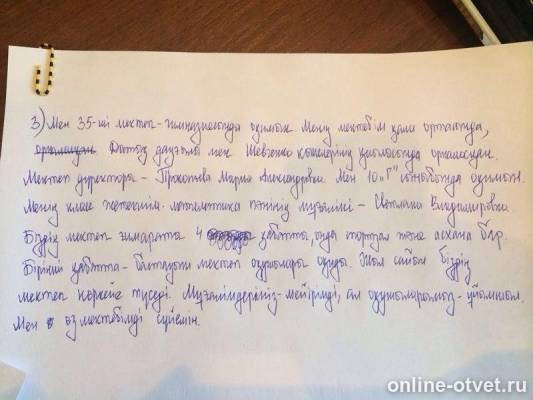 3) Мен 35-ші мектеп-гимназиясында оқимын. Менің мектебім қала ортасында,
Достық даңғылы мен Шевченко көшелерінің қиылысында орналасқан.
Мектеп директоры - Прокопьева Мария Александровна. Мен 10 "Г" сыныбында оқимын.
Менің класс жетекшім - математика пәнінің мұғалімі - Светлана Владимировна.
Біздің мектеп ғимараты 4 қабатты, онда спортзал және асхана бар.
Бірінші қабатта - бастауыш мектеп оқушылары оқиды. Жыл сайын біздің
мектеп көркейе түседі. Мұғалімдеріміз - мейірімді, ал оқушыларымыз - ұйымшыл.
Мен өз мектебімді сүйемін.
online-otvet.ru